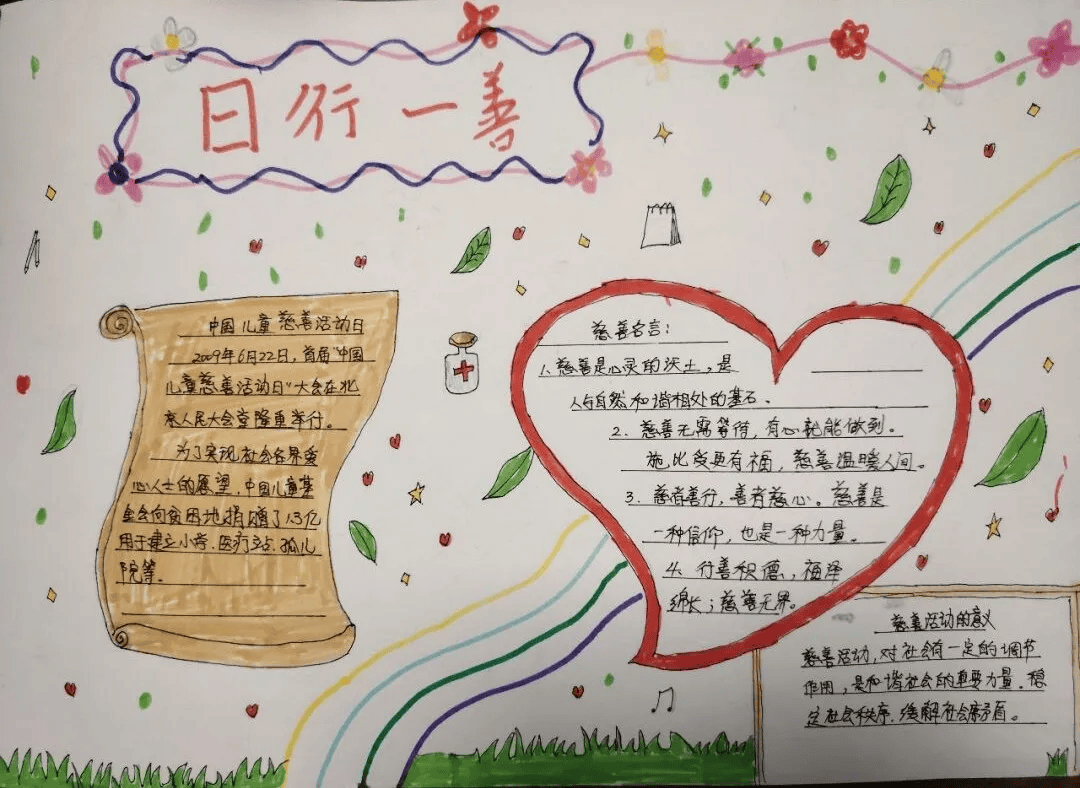 日行一善
中国儿童慈善活动日
2009年6月22日，首届"中国
儿童慈善活动日"大会在北
京人民大会堂隆重举行。
为了实现社会各界爱
心人士的愿望，中国儿童基
金会向贫困地捐赠了1.3亿
用于建立小学、医疗站、孤儿
院等。
慈善名言：
1、慈善是心灵的沃土，是
人与自然和谐相处的基石、
2、慈善无需等待，有心就能做到。
施比受更有福，慈善温暖人间。
3、慈者善行，善者慈心。慈善是
一种信仰，也是一种力量。
4、行善积德，福泽
绵长；慈善无界。
慈善活动的意义
慈善活动，对社会有一定的调节
作用，是和谐社会的重要力量、稳
定社会秩序、缓解社会矛盾。